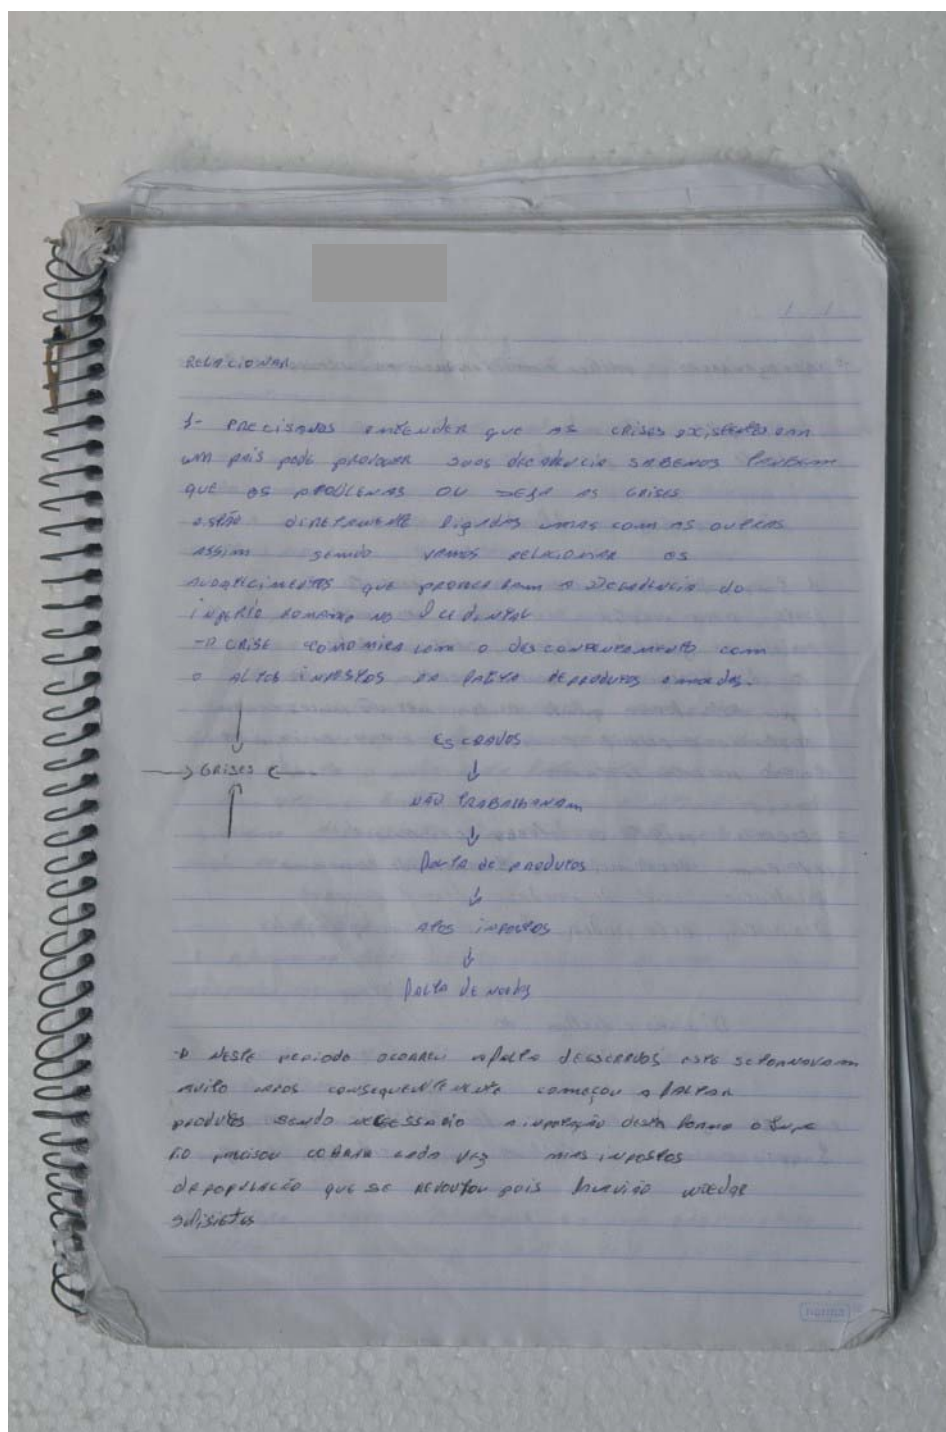 RELACIONAR
1- PRECISAMOS ENTENDER QUE AS CRISES EXISTENTES EM
UM PAIS PODE PROVOCAR SUAS DECADENCIA SABEMOS TAMBEM
QUE OS PROBLEMAS OU SEJA AS CRISES
ESTÃO DIRETAMENTE LIGADAS UMAS COM AS OUTRAS
ASSIM SENDO VAMOS RELACIONAR OS
QUE A DECADENCIA DO
IMPERIO ROMANO NO OCIDENTAL
CRISE COM O DESCONTENTAMENTO COM
O ALTOS IMPOSTOS DA FALTA DE PRODUTOS E MOEDAS.
ESCRAVOS
→ CRISES ←
↓
NÃO TRABALHAVAM
↓
FALTA DE PRODUTOS
↓
IMPOSTOS
↓
FALTA DE
NESTE PERIODO OCORREU A FALTA ESTE SE TORNAVAM
MUITO CONSEQUENTEMENTE COMEÇOU A FALTAR
PRODUTOS SENDO A DESTA FORMA O IMPE
RIO PRECISOU COBRAR CADA VEZ MAIS IMPOSTOS
DA POPULAÇÃO QUE SE POIS